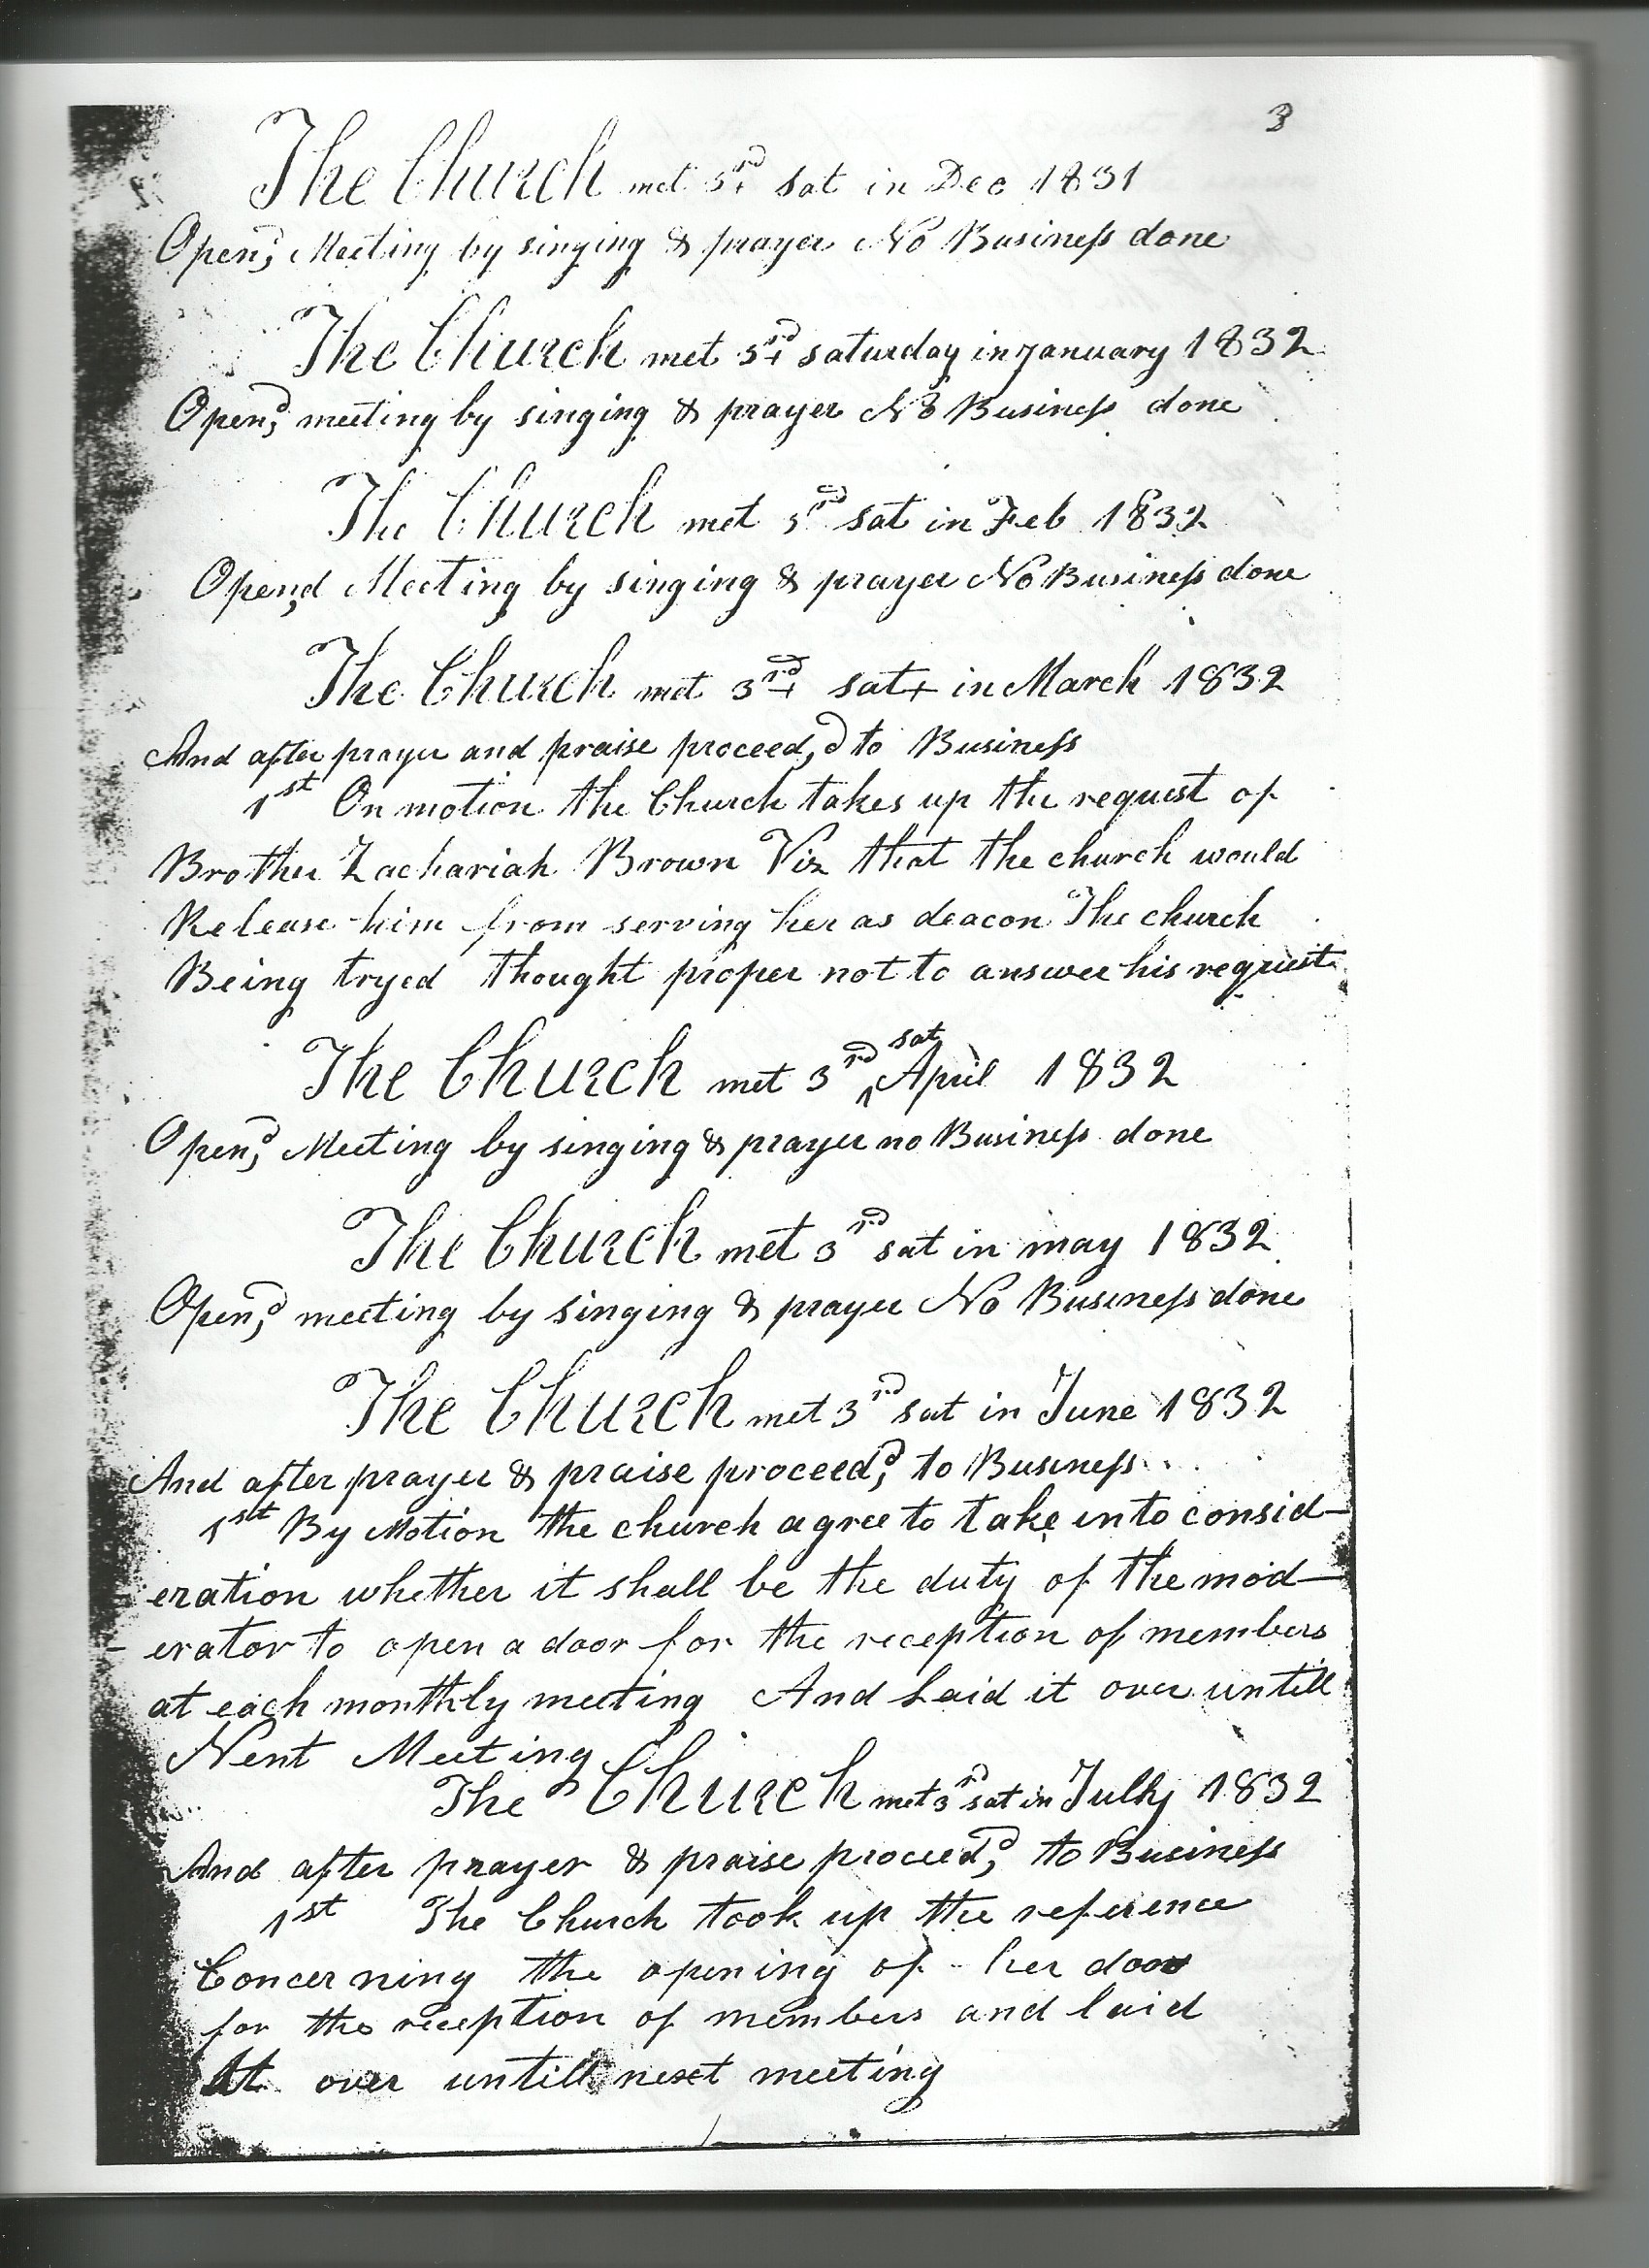 3
The Church met 3rd sat in Dec 1831
Open,d Meeting by singing & prayer No Business done
The Church met 3rd saturday in January 1832
Open,d meeting by singing & prayer No Business done
The Church met 3rd sat in Feb 1832
Open,d Meeting by singing & prayer No Business done
The Church met 3rd sat in March 1832
And after prayer and praise proceed,d to Business
1st On motion the Church takes up the request of
Brother Zachariah Brown Viz that the church would
Release him from serving her as deacon The church
Being tryed thought proper not to answer his request
The Church met 3rd sat April 1832
Open,d Meeting by singing & prayer no Business done
The Church met 3rd sat in may 1832
Open,d meeting by singing & prayer No Business done
The Church met 3rd sat in June 1832
And after prayer & praise proceed,d to Business
1st By Motion the church agree to take into consid-
-eration whether it shall be the duty of the mod-
-erator to open a door for the reception of members
at each monthly meeting And Laid it over untill
Next Meeting
The Church met 3rd sat in Jully 1832
And after prayer & praise proceed,d to Business
1st The Church took up the reference
Concerning the opening of her door
for the reception of members and laid
It over untill next meeting